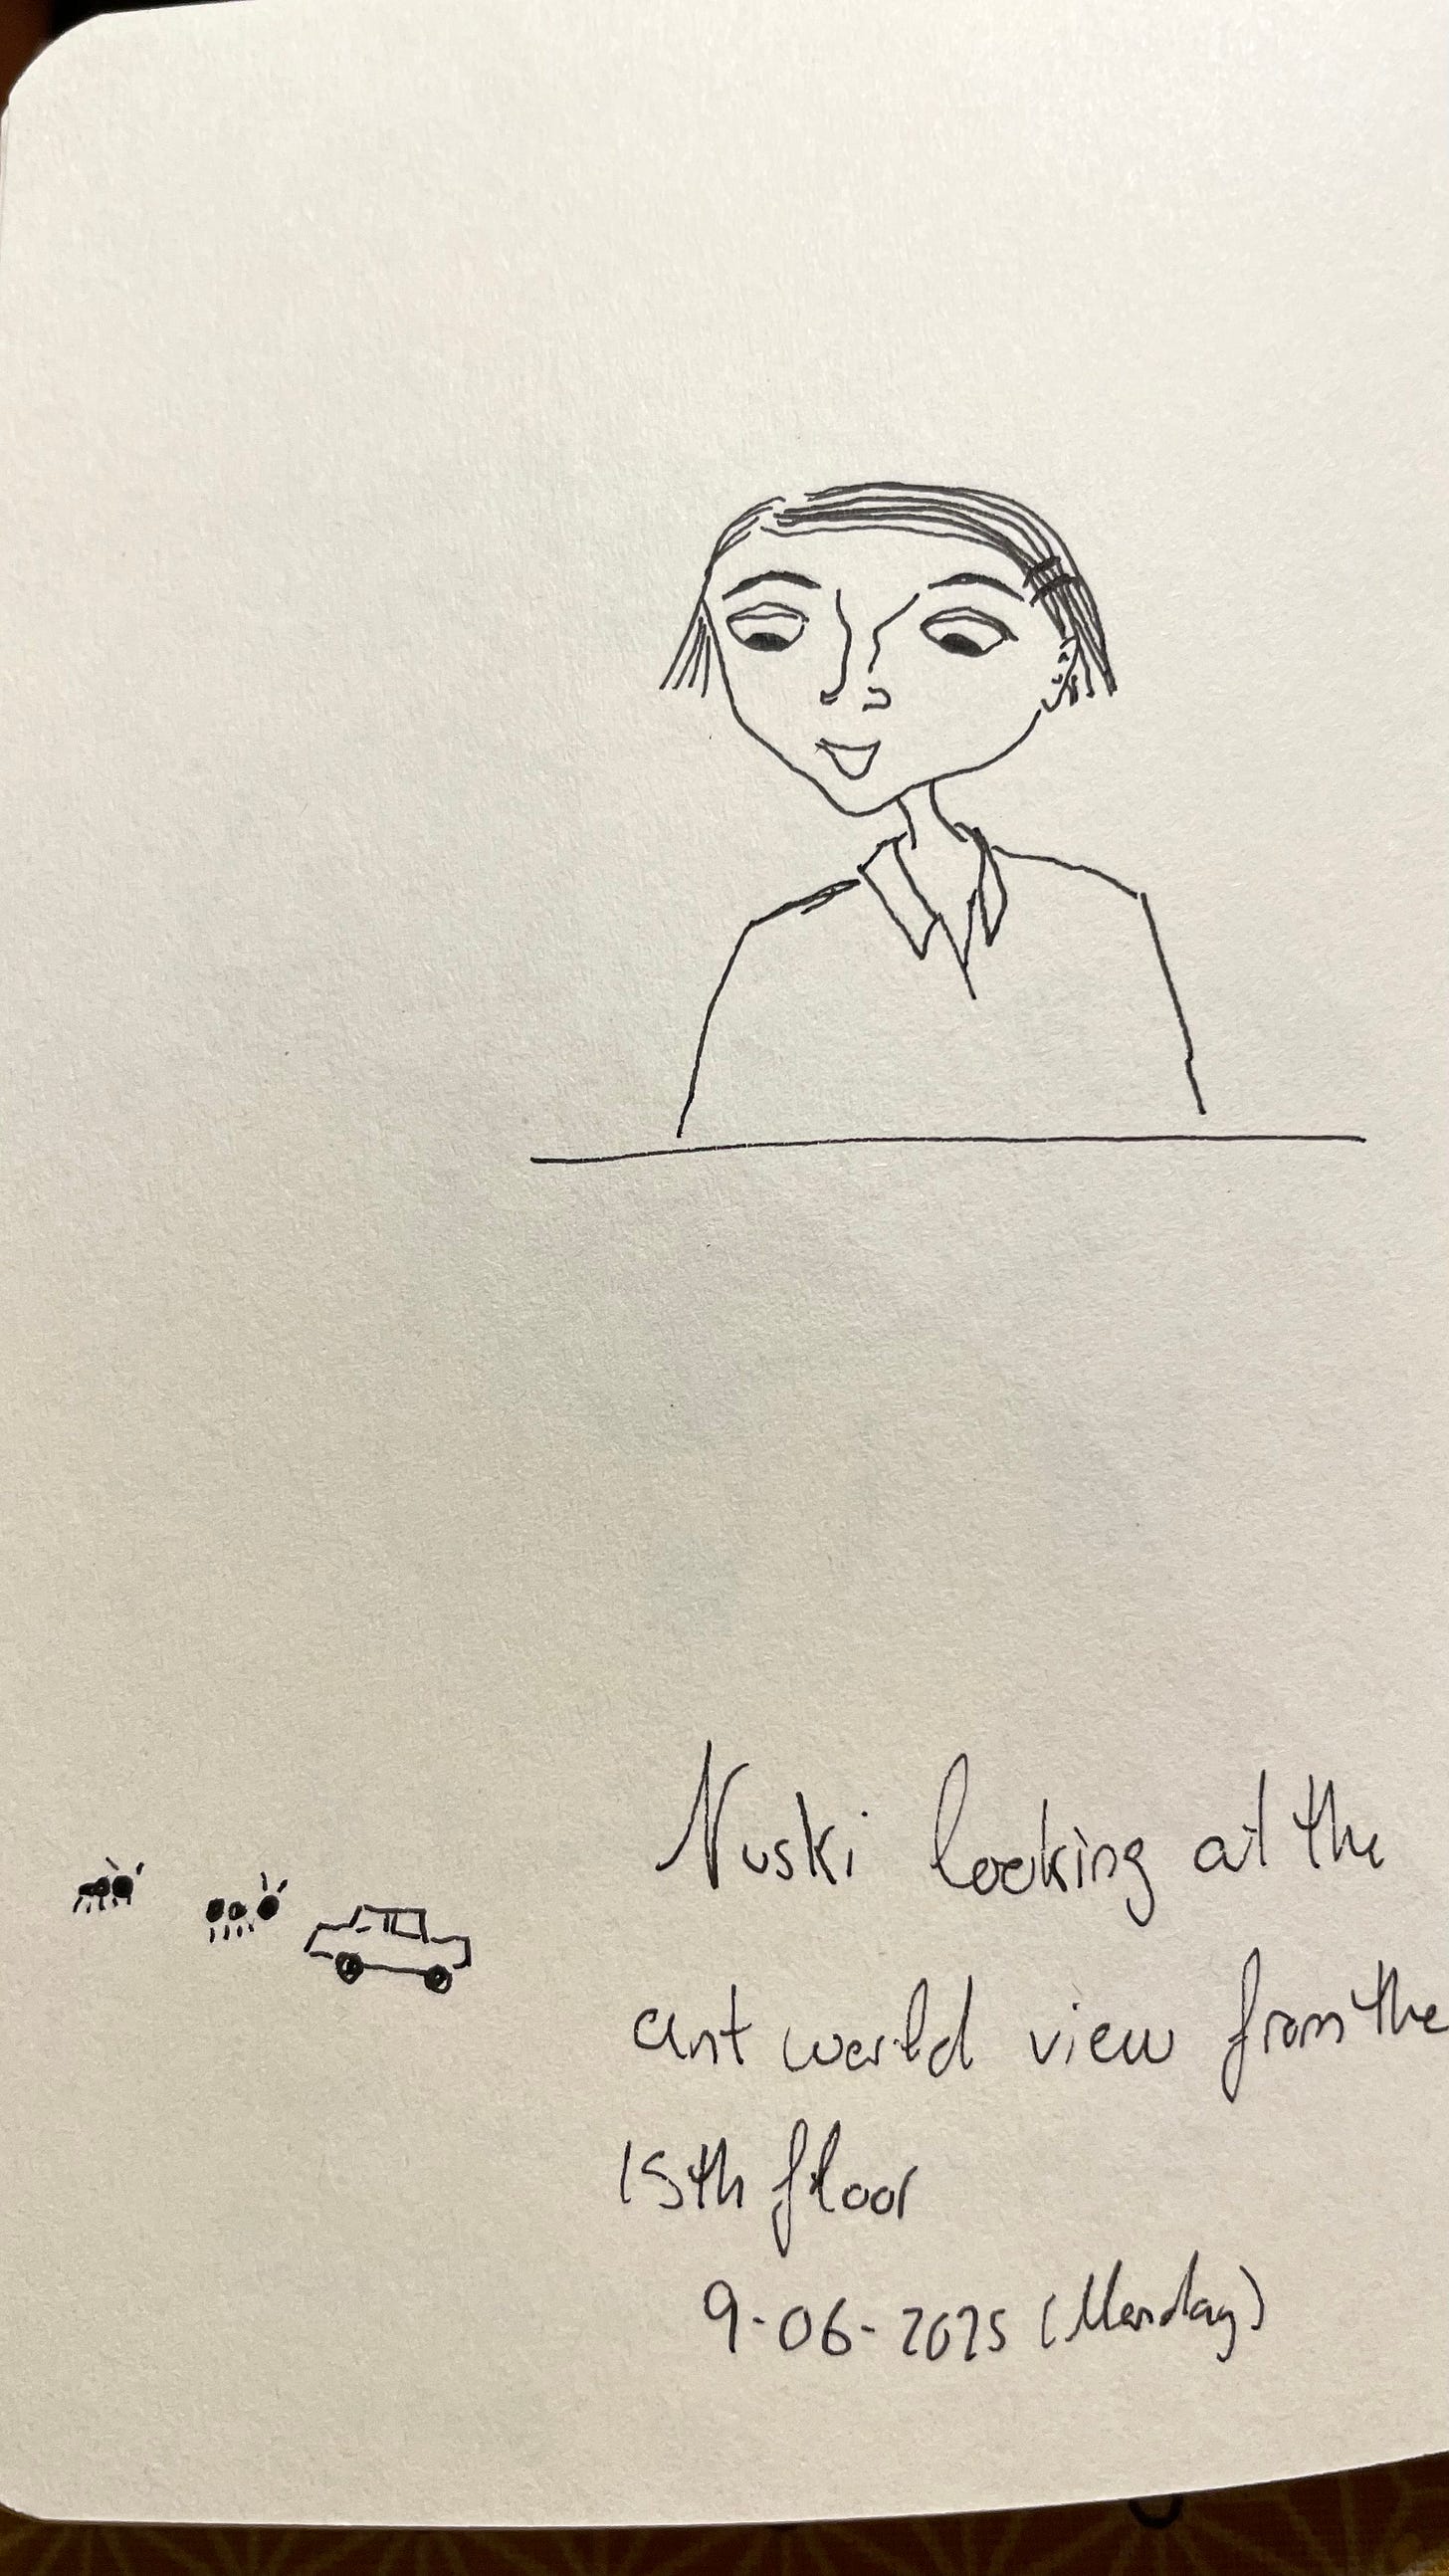 Nuski looking at the
ant world view from the
15th floor
9-06-2025 (Monday)